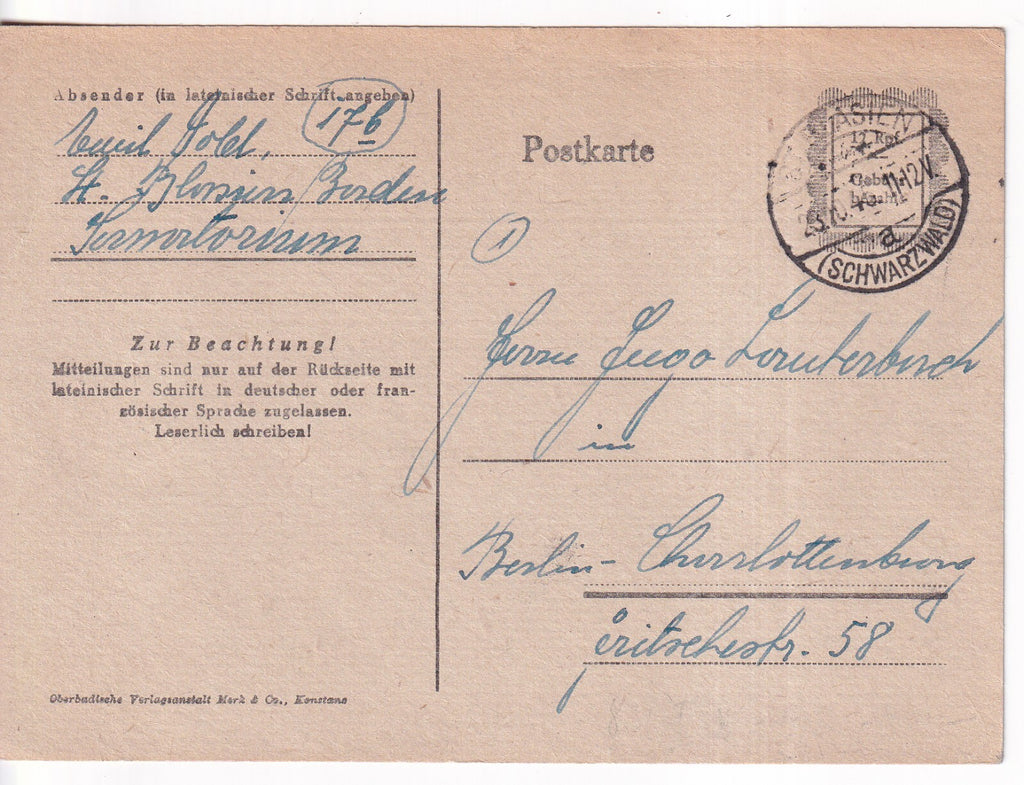 Absender (in lateinischer Schrift angeben)
17b
Emil Dold,
St. Blasien/Baden
Sanatorium
Zur Beachtung!
Mitteilungen sind nur auf der Rückseite mit
lateinischer Schrift in deutscher oder fran-
zösischer Sprache zugelassen.
Leserlich schreiben!
Oberbadische Verlagsanstalt Merk & Co., Konstanz
Postkarte
12 Rpf
BLASIEN
11-12V.
a
(SCHWARZWALD)
1
Herrn Hugo Lauterbach
in
Berlin-Charlottenburg
Fritschestr. 58